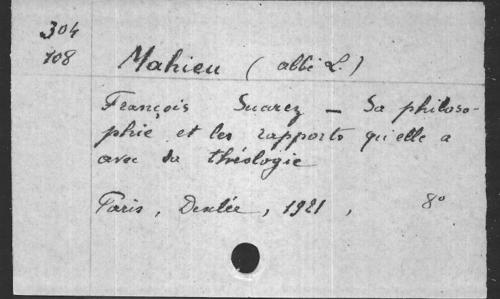 304
108
Mahieu (abbé L.)
François Suarez - Sa philoso-
phie et les rapports qu'elle a
avec sa théologie
Paris, Desclée, 1921, 8°